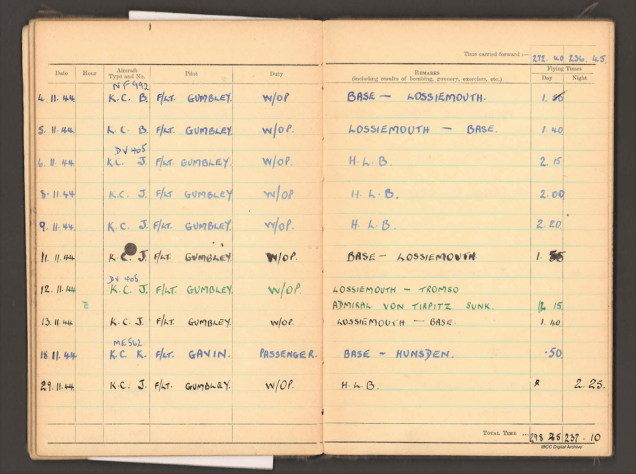 Time carried forward :— 272.40 236.45
Date Hour Aircraft Type and No. Pilot Duty Remarks (including results of bombing, gunnery, exercises, etc.) Flying Times Day Night
NF992
4.11.44 K.C. B. F/LT. GUMBLEY. W/OP BASE — LOSSIEMOUTH. 1.
5.11.44 K.C. B. F/LT. GUMBLEY. W/OP. LOSSIEMOUTH — BASE. 1.40
DV405
6.11.44 K.C. J. F/LT. GUMBLEY. W/OP. H.L.B. 2 15
8.11.44 K.C. J. F/LT GUMBLEY W/OP. H.L.B. 2 00
9.11.44 K.C. J. F/LT. GUMBLEY. W/OP. H.L.B. 2.20
11.11.44 K C. J. F/LT GUMBLEY W/OP. BASE — LOSSIEMOUTH 1.
DV 405
12.11.44 K.C. J. F/LT. GUMBLEY. W/OP LOSSIEMOUTH — TROMSO
ADMIRAL VON TIRPITZ SUNK. 12 15
13.11.44 K.C. J. F/LT. GUMBLEY. W/OP. LOSSIEMOUTH — BASE. 1.40
ME562
18.11.44 K.C K. F/LT. GAVIN. PASSENGER. BASE — HUNSDEN. .50
29.11.44 K.C. J. F/LT. GUMBLEY. W/OP. H.L.B. 2.25.
Total Time ... 298 237.10
IBCC Digital Archive